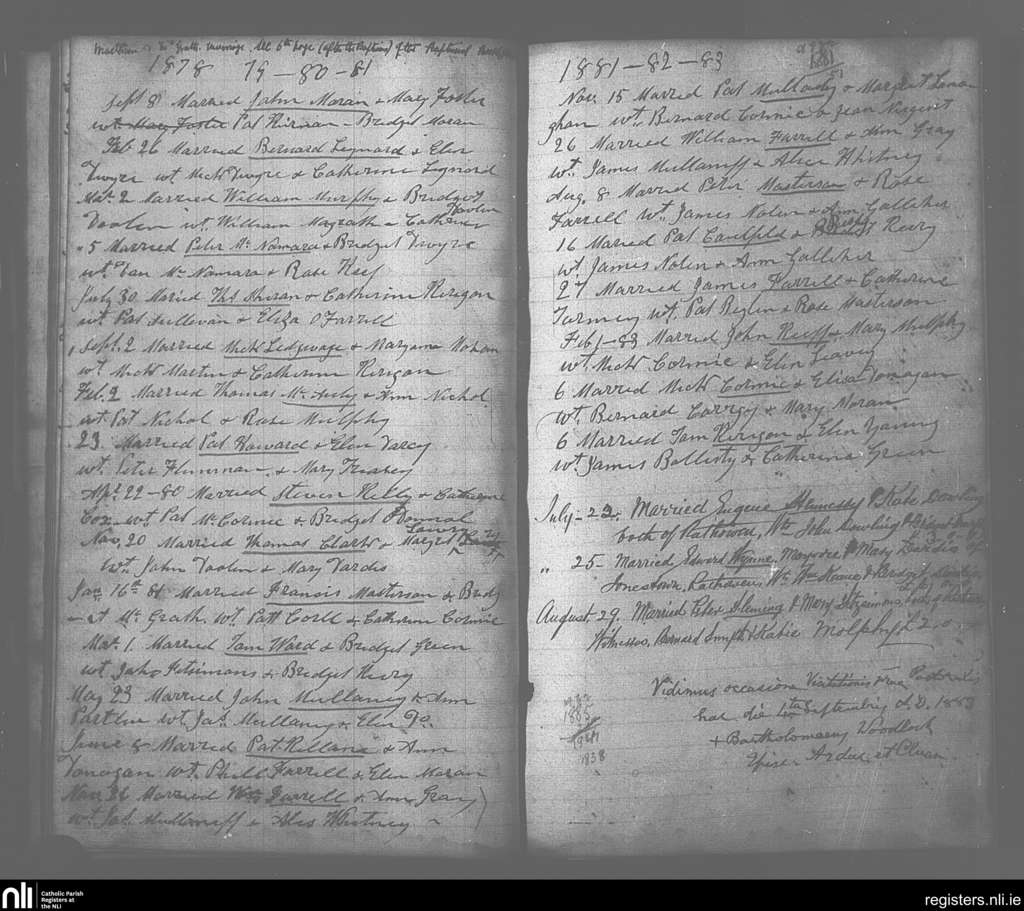 marriage. See 6th Page (after the Baptism) of the Baptismal
1878 79-80-81
Sept 8 Married John Moran & Mary Foster
wt. Mary Foster Pat Kirnan - Bridget Moran
Feb 26 Married Bernard Legnard & Elen
Dwyre wt Mick Dwyre & Catherine Legnord
Mar. 2 Married William Murphy & Bridget
Doolen wt. William Magrath & Catherine Doolen
" 5 Married Peter Mc Namara & Bridget Dwyre
wt. Dan Mc Namara & Rose Keef
July 30 Maried Ths. & Catherine Kerigan
wt. Pat Sullevan & Eliza O'Farrell
Sept. 2 Married Mick Ledgwage & Maryanne Nohan
wt. Mick Martin & Catherine Kerigan
Feb. 2 Married Thomas & Ann Nichol
wt. Pat Nichol & Rose Mulphy
23 Married Pat Howard & Elen Darcy
wt. Peter Flinnman & Mary
Apl. 22-80 Married Steven Kelly & Catherine
Cox wt. Pat McCormic & Bridget O'Donnal
Nov. 20 Married Thomas Clark & Margret
wt. John Doolen & Mary Dardis
Jan 16th 81 Married Francis Masterson & Bridg
-et Mc Grath. wt. Patt Coill & Catherine Cormic
Mar. 1. Married Tam Ward & Bridget Green
wt John Fitsimans & Bridget Revry
May 23 Married John Mullaney & Ann
Partlin wt. Jas. Mullaney & Elen Do.
June 8 Married Pat Killane & Ann
Donogan wt. Phill Farrell & Elen Moran
Nov. 26 Married Wm Farrell & Ann Gray
wt. Jas. Mullaniff & Ales Whitney
1881-82-83
Nov. 15 Married Pat Mullaney & Margret Lena
ghan wt. Bernard Cormic & Jean Nugent
26 Married William Farrell & Ann Gray
wt. James Mullaniff & Alice Whitney
Aug. 8 Married Peter Masterson & Rose
Farrell wt. James Nolin & Ann Galleher
16 Maried Pat Caulfeld & Revry
wt. James Nolin & Ann Galleher
27 Married James Farrell & Catherine
Turmey wt. Pat Reylin & Rose Masterson
Feb 1-83 Married John Keeff & Mary Mulphy
wt. Mick Cormic & Elen Leavey
6 Married Mick Cormic & Elisa Donagan
wt. Bernard Corrigoy & Mary Moran
6 Married Tam Kerigan & Elen Young
wt. James Ballesty & Catherine Green
July- 23. Married Eugene Hennessy & Kate Dowling
both of Rathowen, Wts John Dowling &
" 25- Married Edward Wynne, & Mary Dardis of
Jonestown, Rathowen, Wts. Wm Keane & Bridget
August 29. Married Peter Fleming & Mary Fitzsimons, both of
Witnesses, Bernard Smyth & Katie
Vidimus occasione Visitationis nrae Pastoralis
hac die Septembris A.D. 1883
+ Bartholomaeus Woodlock
Episc. Ardac. et Cluan.
1883
1838
nli
Catholic Parish
Registers at
the NLI
registers.nli.ie